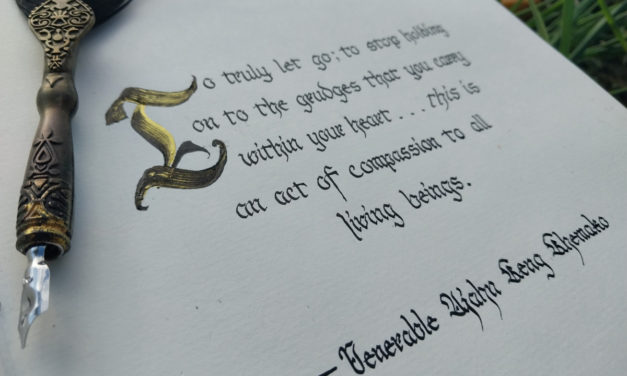 To truly let go; to stop holding
on to the grudges that you carry
within your heart . . . this is
an act of compassion to all
living beings.
— Venerable Ajahn Keng Khemako